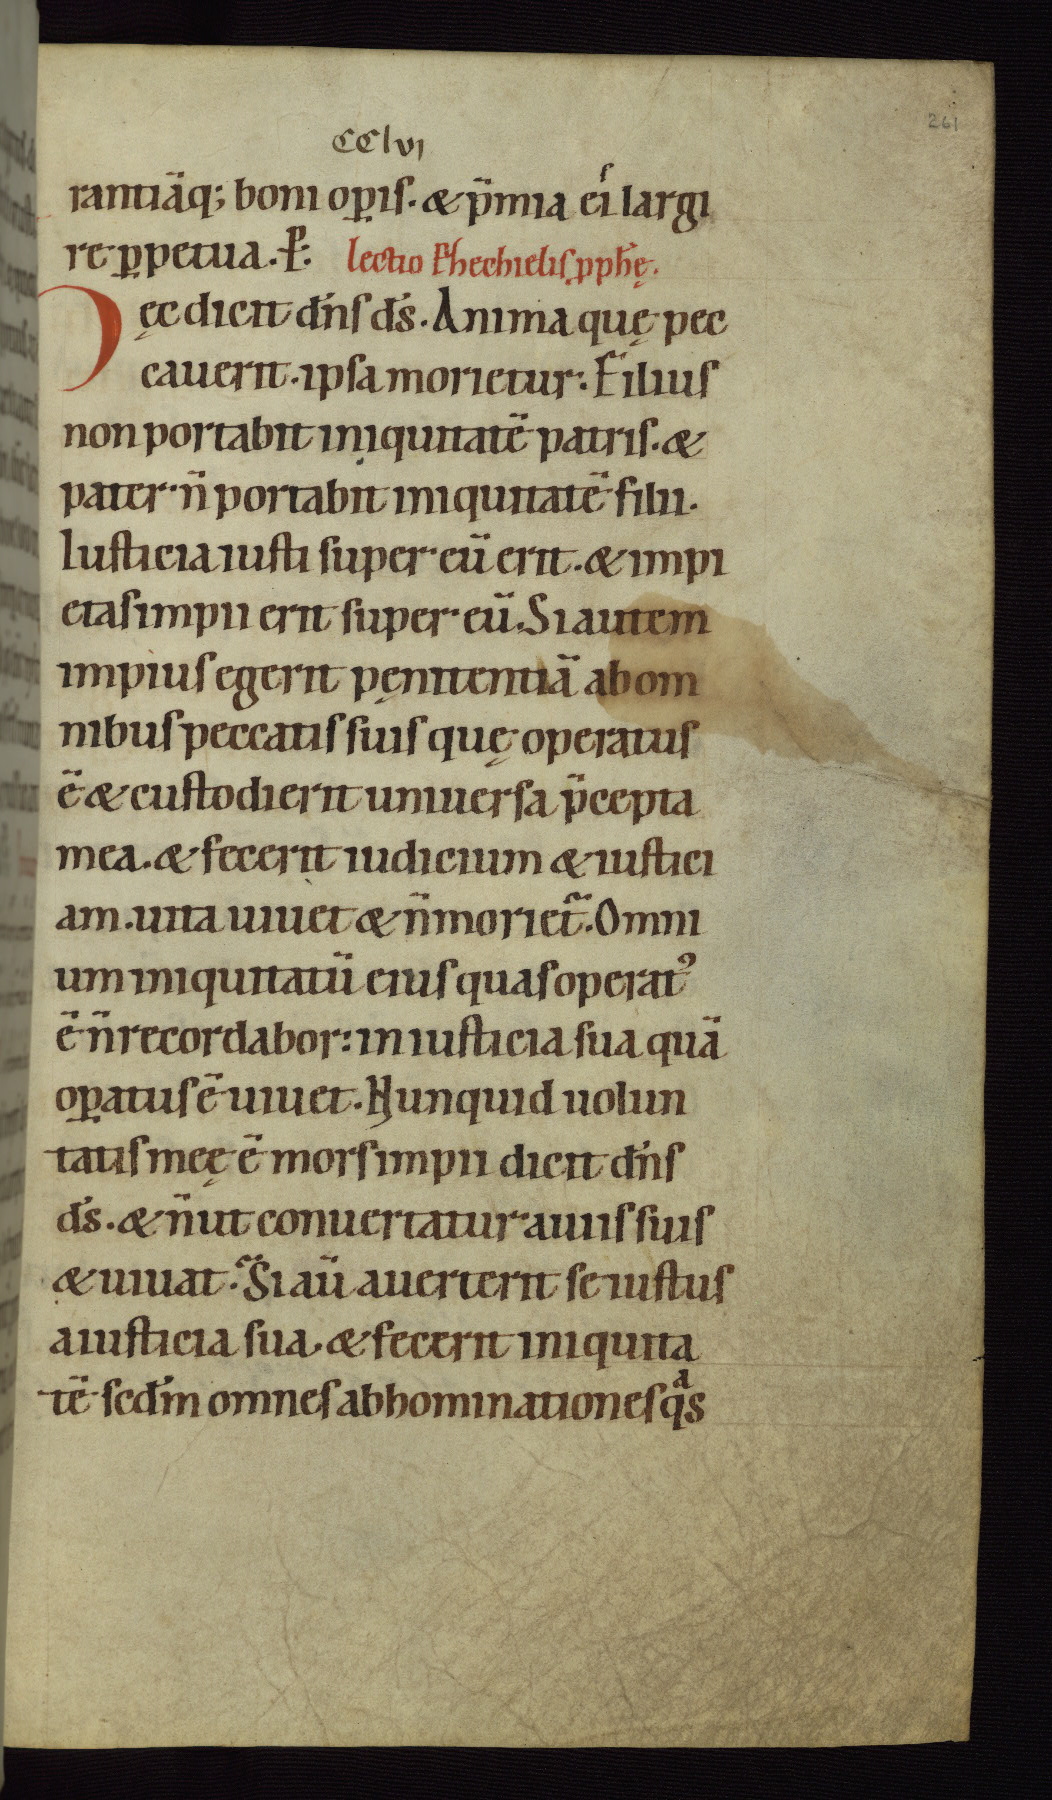 CClvi
261
rantiāq; boni op̱is. & p̄mia ei largi
re p̱petua. P̱.
lectio hiechielis p̱ph̄ę.
Hęc dicit dn̄s ds̄. Anima quę pec
cauerit. ipsa morietur: Filius
non portabit iniquitatē patris. &
pater n̄ portabit iniquitatē filii.
Iusticia iusti super eū erit. & impi
etas impii erit super eū. Si autem
impius egerit pęnitentiā ab om
nibus peccatis suis quę operatus
ē & custodierit uniuersa p̄cepta
mea. & fecerit iudicium & iustici
am. uita uiuet & n̄ moriet̃. Omni
um iniquitatū eius quas operatꝰ
ē n̄ recordabor: in iusticia sua quā
op̱atus ē uiuet. Nunquid uolun
tatis meę ē mors impii dicit dn̄s
ds̄. & n̄ ut conuertatur a uiis suis
& uiuat. Si aū auerterit se iustus
a iusticia sua. & fecerit iniquita
tē scd̄m omnes abhominationes qͣs